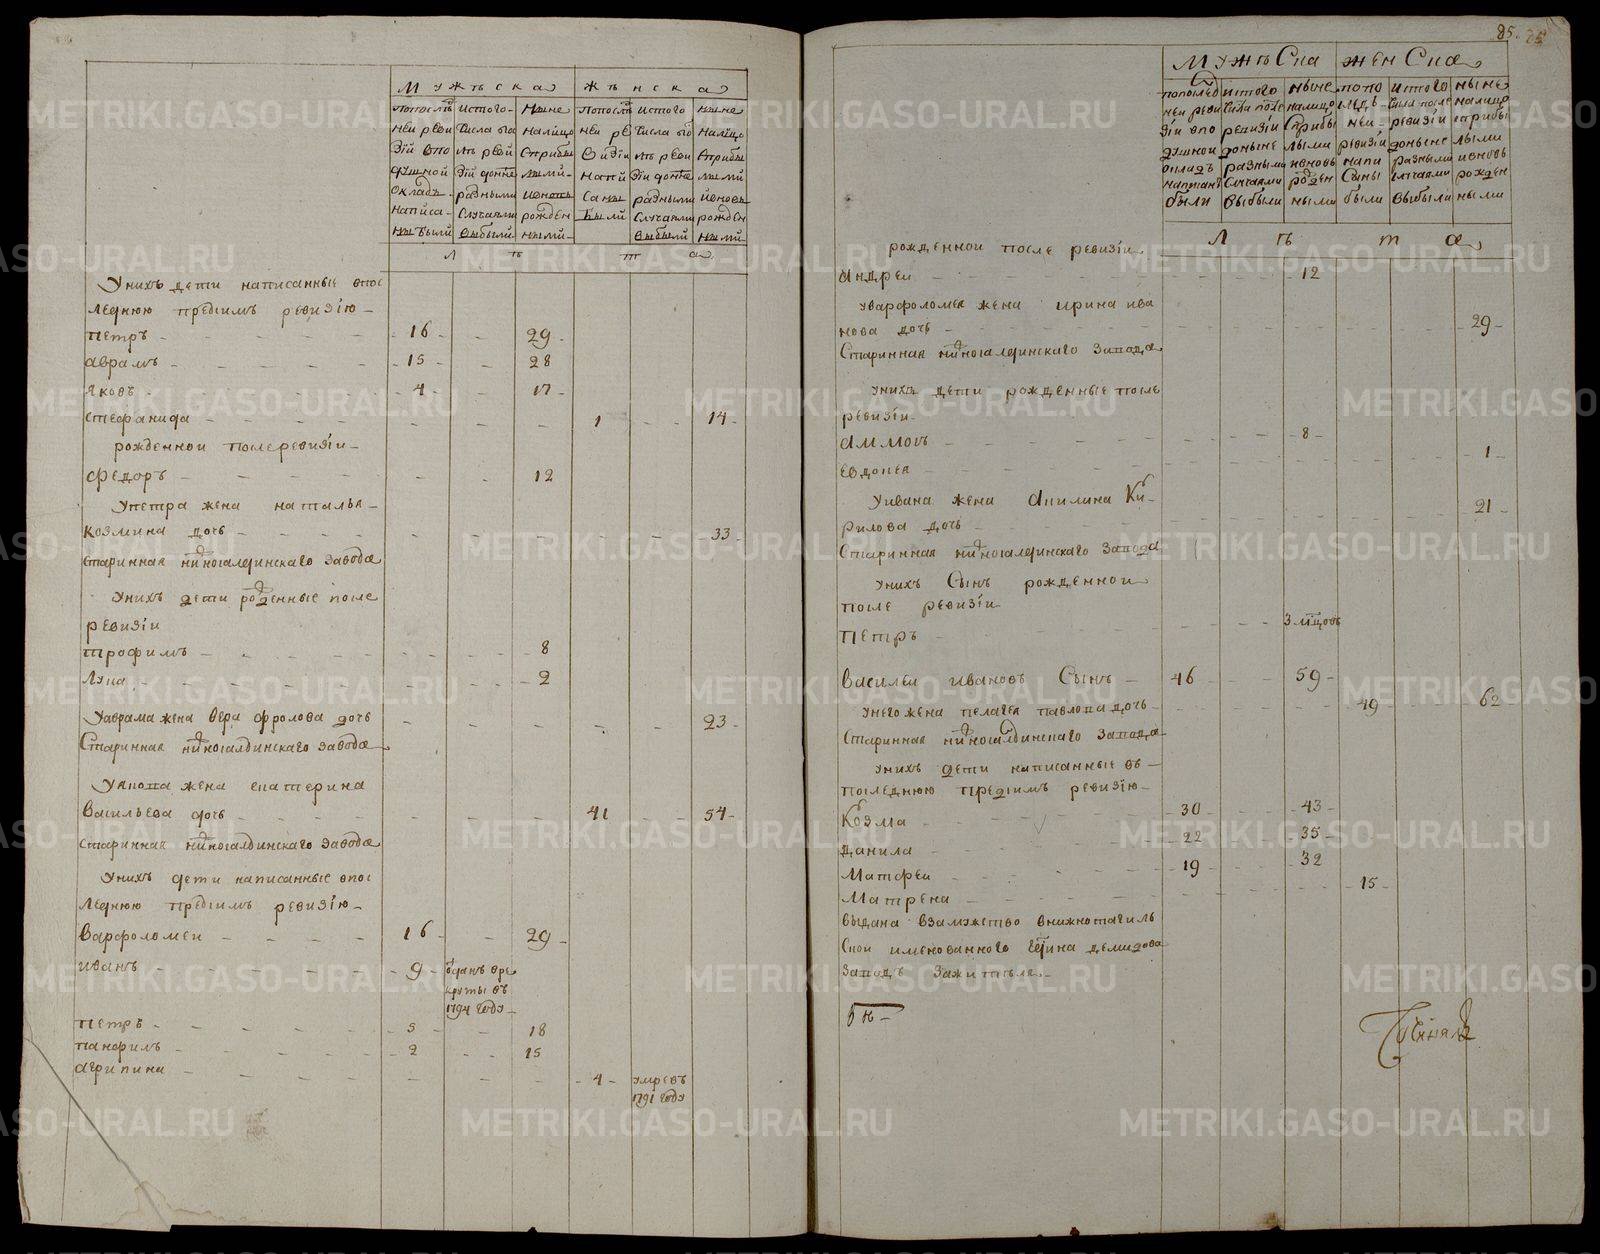 Мужъска
жѣнска
попослѣд
ней реви
зіи впо
душной
окладъ
написа-
ны были
истого-
числа по
слѣ реви
зіи донне
разными
случаями
выбыли
ныне
налицо
сприбы
лыми-
ивновь
рожден
ными-
попослѣ
ней ре
визіи
напи
саны
были
истого
числа по
слѣ реви
зіи донне
разными
случаями
выбыли
ныне
налицо
сприбы
лыми
ивновь
рожден
ными
л ѣ т а
Унихъ дети написанные впос
леднюю предсимъ ревизію
Петръ 16 29
Аврамъ 15 28
Яковъ 4 17
Стефанида 1 14
рожденной послеревизіи
Федоръ 12
Упетра жена наталья
Козмина дочь 33
Старинная нижносалдинскаго завода
Унихъ дети рожденные после
ревизіи
Трофимъ 8
Лука 2
Уаврама жена Вера фролова дочь 23
Старинная нижносалдинскаго завода
Уякова жена екатерина
Васильева дочь 41 54
Старинная нижносалдинскаго завода
Унихъ дети написанные впос
леднюю предсимъ ревизію
Варфоломей 16 29
Иванъ 9 отданъ вре
круты въ
1794 году
Петръ 5 18
Панфилъ 2 15
Агрипина 4 умре въ
1791 году
85.
Мужъска
женска
попослед
ней реви
зіи впо
душной
окладъ
написаны
были
итого
числа после
ревизіи
доныне
разными
случаями
выбыли
ныне
налицо
сприбы
лыми
ивновь
рожден
ными
попо
след-
ней-
ревизіи
напи
саны
были
итого
числа после
ревизіи
доныне
разными
случаями
выбыли
ныне
налицо
сприбы
лыми
ивновь
рожден
ными
л ѣ т а
рожденной после ревизіи
Андрей 12
Уварфоломея жена ирина ива
нова дочь 29
Старинная нижносалдинскаго завода
унихъ дети рожденные после
ревизіи
Аммосъ 8
Евдокея 1
Уивана жена Акилина Ки-
рилова дочь 21
Старинная нижносалдинскаго завода
унихъ Сынъ рожденной
после ревизіи
Петръ 3 мцовъ
Василей ивановъ Сынъ 46 59
Унего жена пелагея павлова дочь 49 62
Старинная нижносалдинскаго завода
унихъ дети написанные въ
последнюю предсимъ ревизію
Козма 30 43
Данила 22 35
Матфей 19 32
Матрена 15
выдана взамужетво внижнотагиль
ской именованного гдина демидова
заводъ зажителя
METRIKI.GASO-URAL.RU